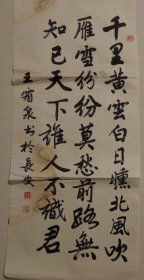 千里黄雲白日曛北風吹
雁雪紛紛莫愁前路無
知己天下誰人不識君
王甯泉书於長安